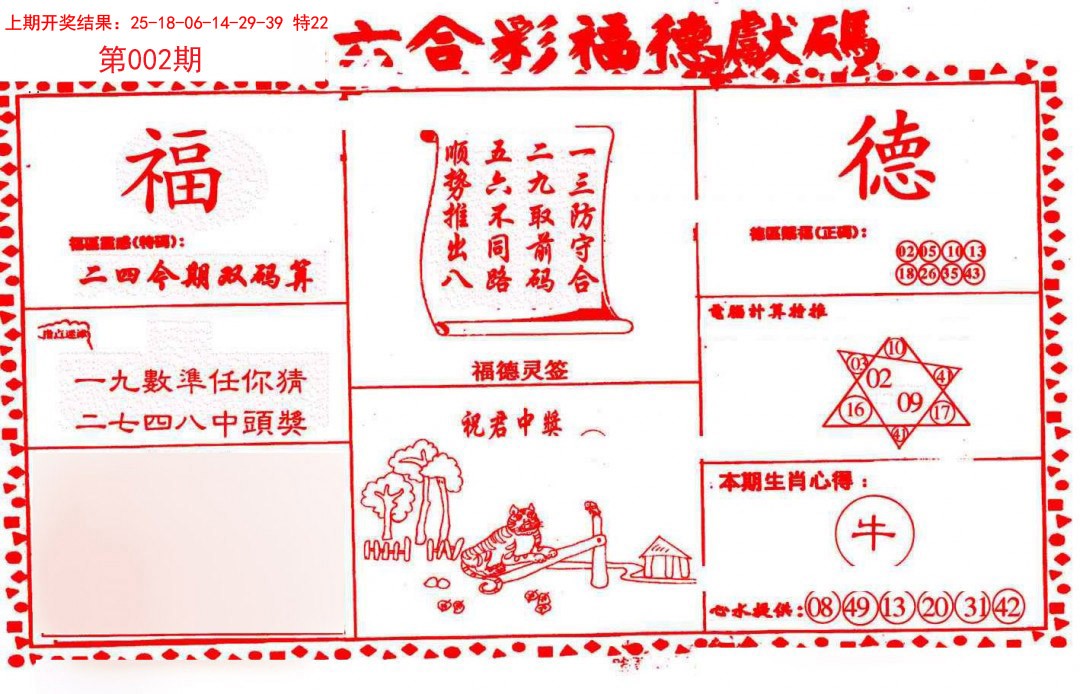 上期开奖结果：25-18-06-14-29-39 特22
第002期
六合彩福德獻碼
福
福區靈感(特碼)：
二四今期双码算
一九數準任你猜
二七四八中頭獎
一三防守合
二九取前码
五六不同路
顺势推出八
福德灵签
祝君中獎
德
德區賜福(正碼)：
02 05 10 13
18 26 35 43
電腦計算拾推
10
03 02 41
16 09 17
41
本期生肖心得：
牛
心水提供：08 49 13 20 31 42